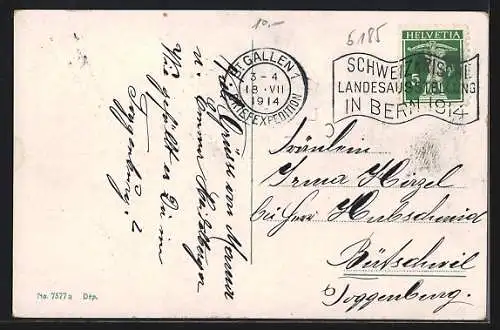 10.-
6185
ST. GALLEN 1
3-4
18.VII
1914
BRIEFEXPEDITION
HELVETIA
5
SCHWEIZERISCHE
LANDESAUSSTELLUNG
IN BERN 1914
Viele Grüsse von Mama
u. Emma
Wie gefällt es Dir im
Toggenburg?
Fräulein
Irma Hirzel
bei Herr Hubschmid
Bütschwil
Toggenburg.
No. 7577a Dép.